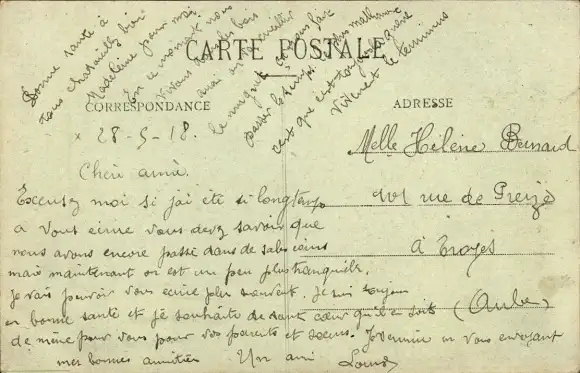 Bonne santé à
tous chatouillez bien
Madeleine pour moi
En ce moment nous
vivons les bois
aussi on cueillir
le muguet ça nous fait
passer le temps plus malheureux
c'est que c'est toujours guerre
Vivement le terminus
CARTE POSTALE
CORRESPONDANCE
ADRESSE
28-5-18.
Cheri amie.
Excusez moi si j'ai été si longtemps
a vous ecrire vous devez savoir que
nous avons encore passé dans de sales coins
mais maintenant on est un peu plus tranquille.
je vais pouvoir vous ecrire plus souvent. Je suis toujours
en bonne santé et je souhaite de tout cœur qu'il en soit
de même pour vous pour vos parents et sœurs. Je termine en vous envoyant
mes bonnes amitiés Un ami Louis
Melle Hélène Bernard
101 rue de Preize
à Troyes
(Aube)